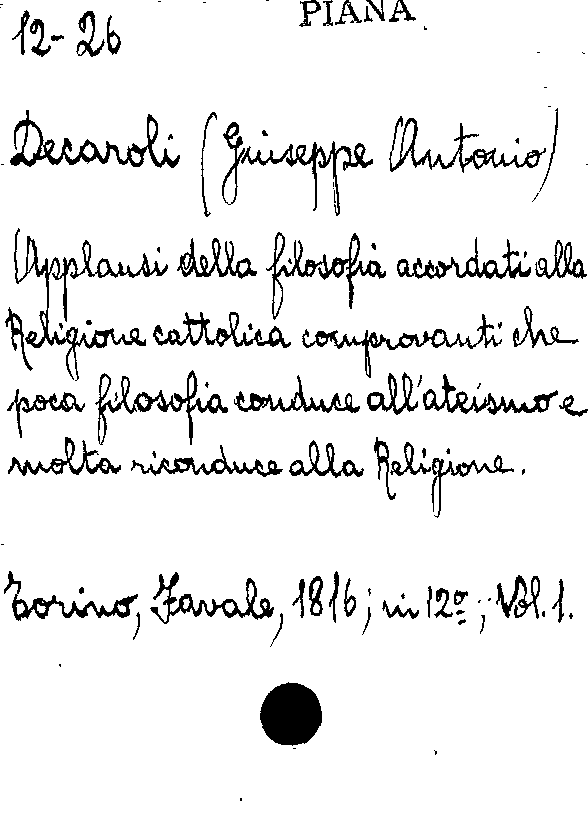 PIANA
12-26
Decaroli (Giuseppe Antonio)
Applausi della filosofia accordati alla
Religione cattolica comprovanti che
poca filosofia conduce all'ateismo e
molta riconduce alla Religione.
Torino, Favale, 1816; in 12º; Vol. 1.